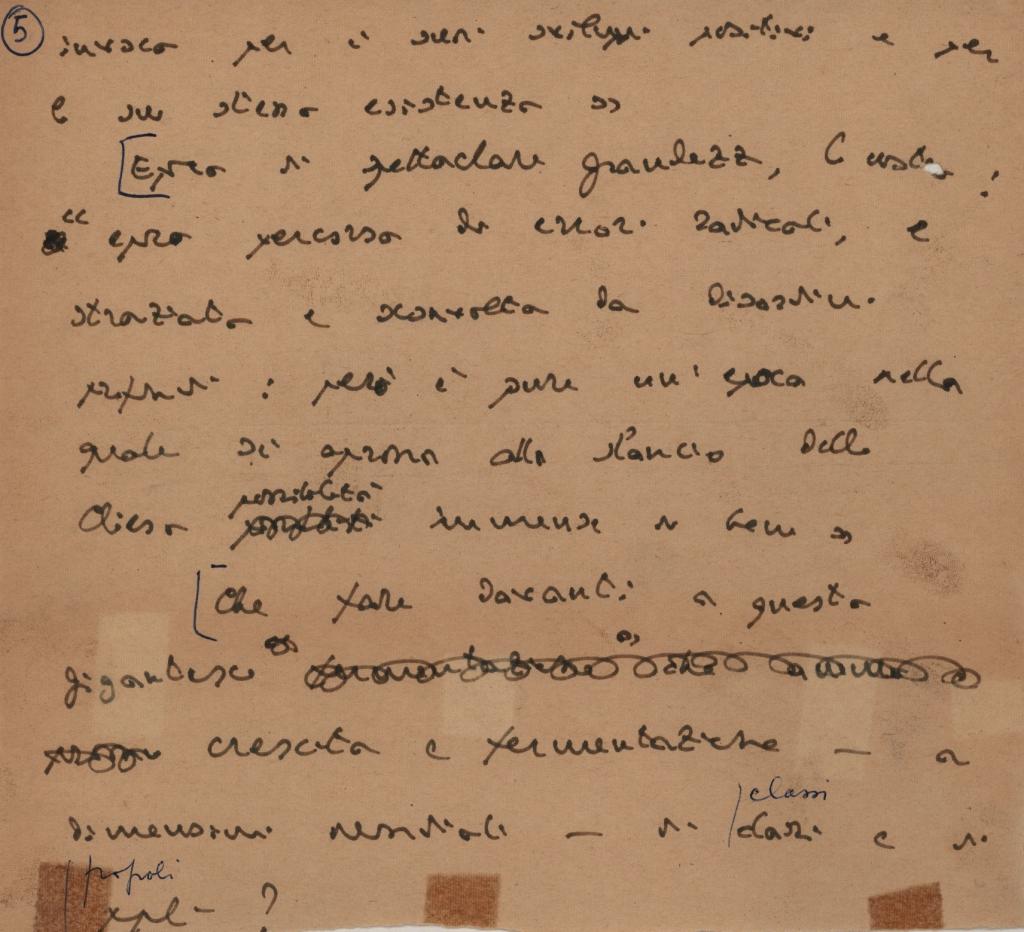 5
invoca per i suoi sviluppi positivi e per
la sua stessa esistenza »
[Epoca di spettacolare grandezza, questa:
“ epoca percorsa da errori radicali, e
straziata e sconvolta da disordini
profondi: però è pure un'epoca nella
quale si aprono allo slancio della
Chiesa possibilità immense di bene »
[Che fare davanti a questa
gigantesca
crescita e fermentazione — a
dimensioni mondiali — di classi classi e di
popoli popoli ?